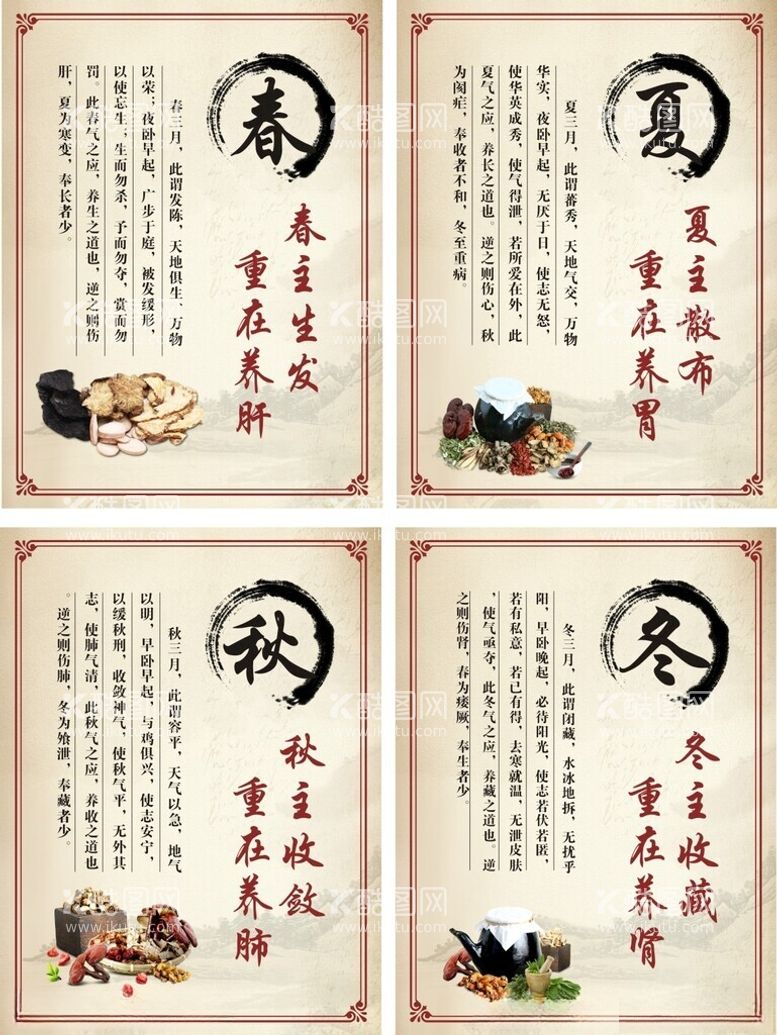 春
春主生发
重在养肝
春三月，此谓发陈，天地俱生，万物
以荣；夜卧早起，广步于庭，被发缓形，
以使忘生，生而勿杀，予而勿夺，赏而勿
罚。此春气之应，养生之道也，逆之则伤
肝，夏为寒变，奉长者少。
夏
夏主散布
重在养胃
夏三月，此谓蕃秀，天地气交，万物
华实，夜卧早起，无厌于日，使志无怒，
使华英成秀，使气得泄，若所爱在外，此
夏气之应，养长之道也。逆之则伤心，秋
为阂疟，奉收者不和，冬至重病。
秋
秋主收敛
重在养肺
秋三月，此谓容平，天气以急，地气
以明，早卧早起，与鸡俱兴，使志安宁，
以缓秋刑，收敛神气，使秋气平，无外其
志，使肺气清，此秋气之应，养收之道也
。逆之则伤肺，冬为飧泄，奉藏者少。
冬
冬主收藏
重在养肾
冬三月，此谓闭藏，水冰地拆，无扰乎
阳，早卧晚起，必待阳光，使志若伏若匿，
若有私意，若已有得，去寒就温，无泄皮肤
，使气亟夺，此冬气之应，养藏之道也。逆
之则伤肾，春为痿厥，奉生者少。
酷图网
www.ikutu.com